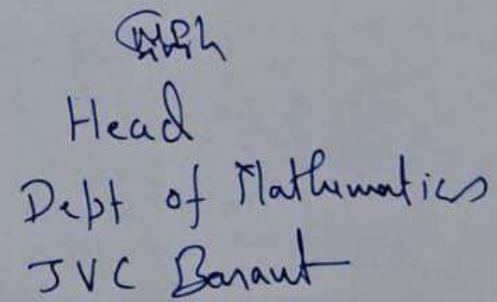 Head
Dept of Mathematics
JVC Baraut